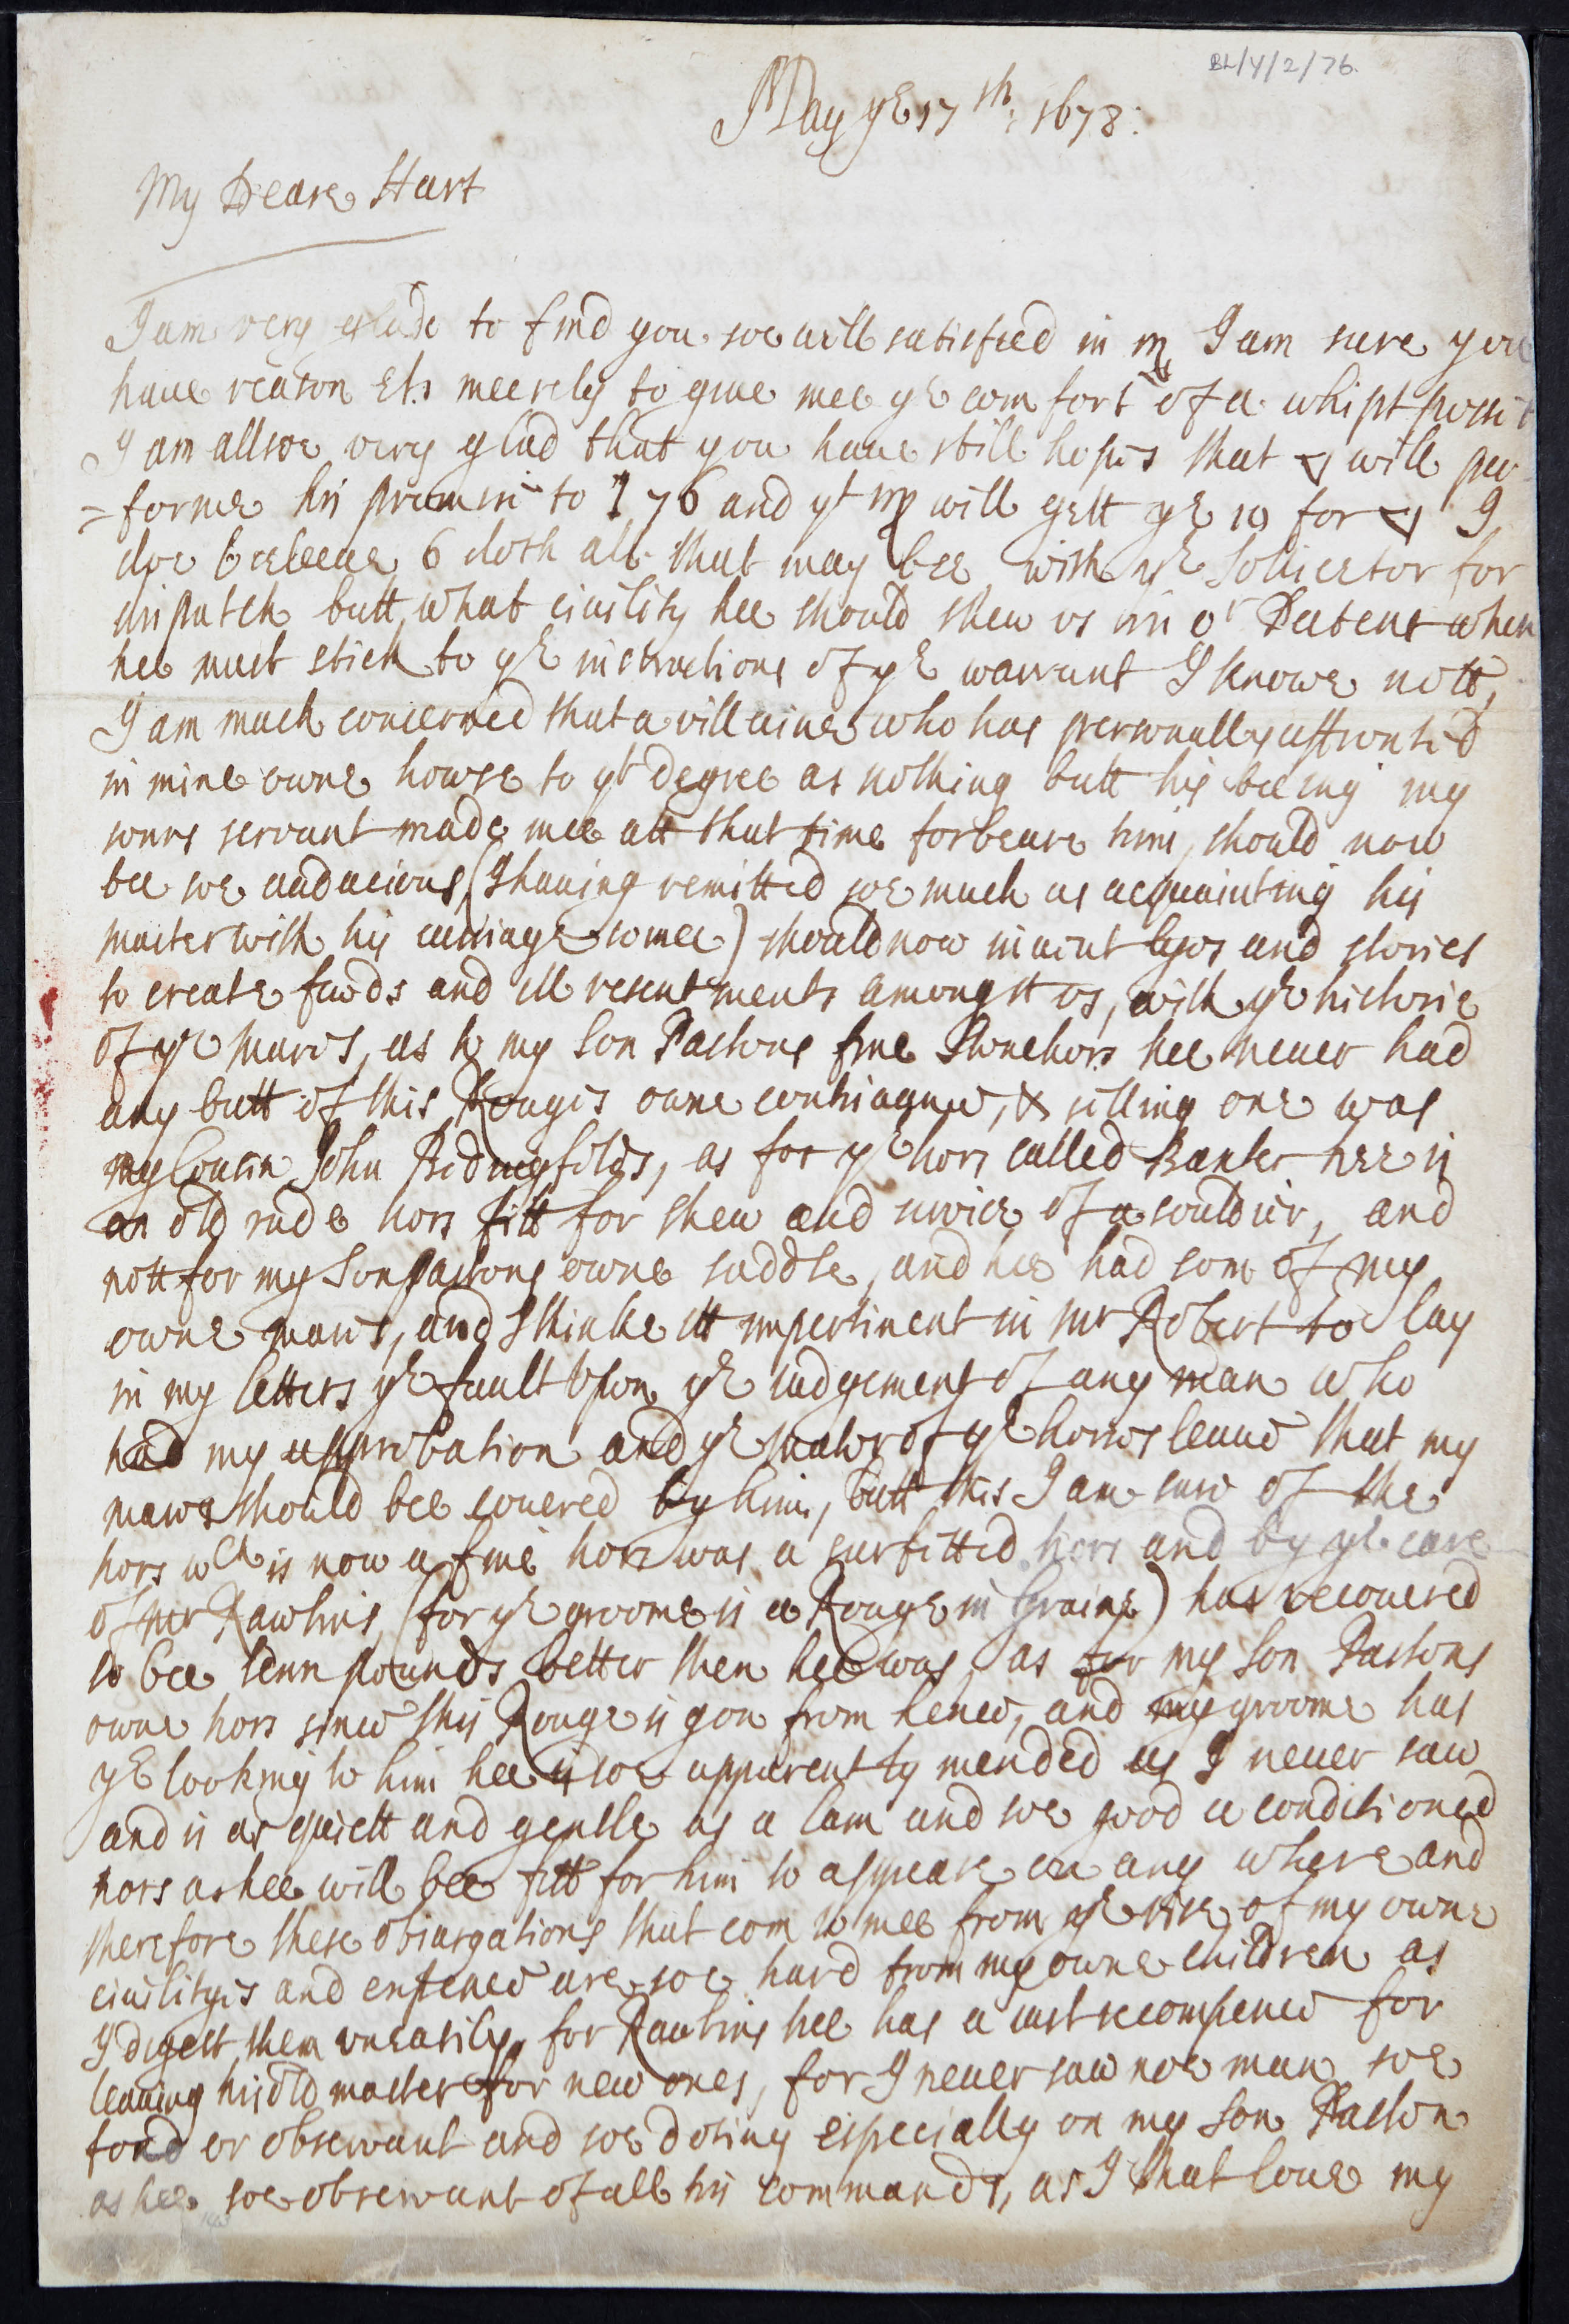 BL/Y/2/76.
May yE 17th: 1678:
My Deare Hart
I am very glade to find you soe well satisfied in I am sure you
haue reason Et.s meerely to giue mee yE comfort of a whipt possit
I am allsoe very glad that you haue still hopes that will per
=forme his promise to 176 and yt will gett yE 10 for I
doe beeleeue 6 doth all that may bee with yE Solliceter for
dispatch butt what ciuility hee should shew us in or Pattent when
hee must stick to yE instructions of yE warrant I knowe nott,
I am much concerned that a villaine who has personally affronted
in mine owne howse to yt degree as nothing butt his beeing my
sons servant made mee att that time forbeare him, should now
bee soe audacious, (I hauing remitted soe much as acquainting his
master with his carriage to mee) should now inuent lyes and stories
to create feuds and ill resentments amongst us, with yE historie
of yE mares, as to my Son Pastons fine Stonehors hee neuer had
any butt of this Rougis owne contriuance, & selling one was
my Cousin John Bedingfilds, as for yE hors called Banker hee is
an old rude hors fitt for shew and service of a souldier, and
nott for my Son Pastons owne saddle, and hee had som of my
owne mares, and I thinke itt impertinent in mr Robert to lay
in my letters yE fault upon yE iudgement of any man who
had my approbation and yE mater of yE horses leaue that my
mares should bee couered by him, butt this I am sure of the
hors wch is now a fine hors was a surfitted hors and by yE care
of mr Rawlins (for yE groome is a Rouge in Graine) has recouered
to bee tenn pounds better then hee was, as for my Son Pastons
owne hors since this Rouge is gon from hence, and my groome has
yE looking to him hee is soe apparently mended as I neuer saw
and is as quiett and gentle as a lam and soe good a conditioned
hors as hee will bee fitt for him to appeare on any where and
therefore these obiurgations that com to mee from yE rise of my owne
ciuilityis and expence are soe hard from my owne children as
I digest them uneasily, for Rawlins hee has a iust recompence for
leauing his old master for new ones, for I neuer saw noe man soe
fond or observant and soe doting especially on my Son Paston
as hee, soe observant of all his commands, as I that loue my